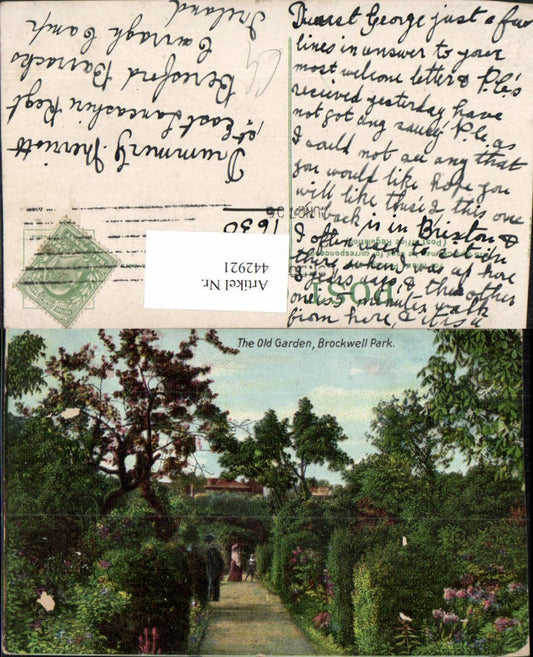 Dearest George just a few
lines in answer to your
most welcome letter & P.C's
recieved yesterday have
not got any saucy P.C. as
I could not see any that
you would like hope you
will like these, this one
back, is in Brixton, &
I often used to sit in
there when I was up here
years ago, & the other
one is 5 minutes walk
from here, & its a
Drummer G.
1st East Lancashire Regt
Beresford Barracks
Curragh Camp
Ireland
1630
Artikel Nr.
442921
POST
The Old Garden, Brockwell Park.